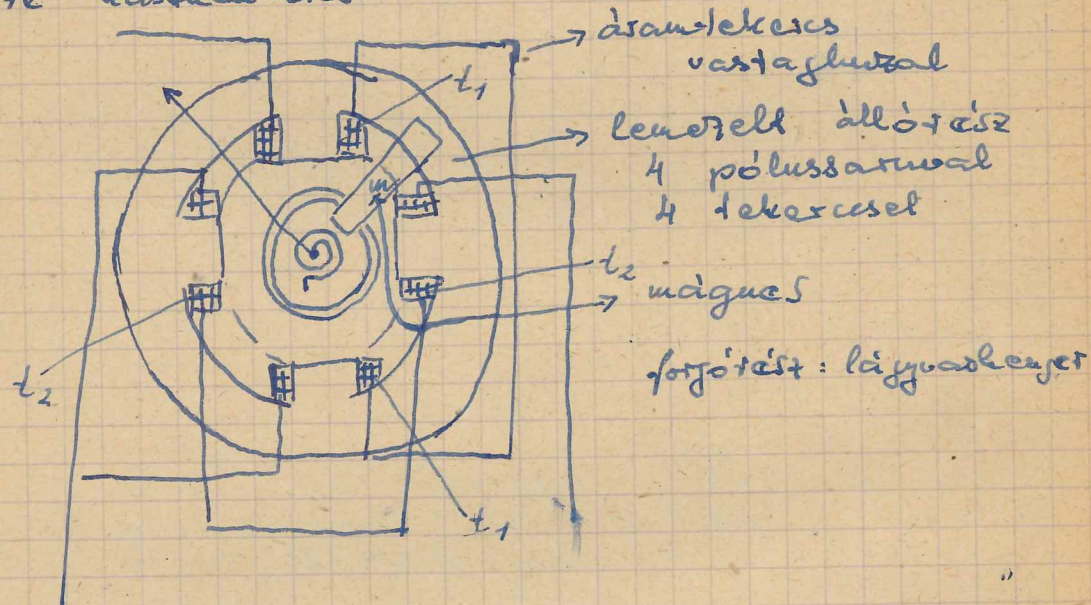 áramtekercs
vastaghuzal
t₁
lemezelt állórész
4 pólussaruval
4 tekerccsel
m
t₂
mágnes
t₂
forgórész: lágyvashenger
t₁